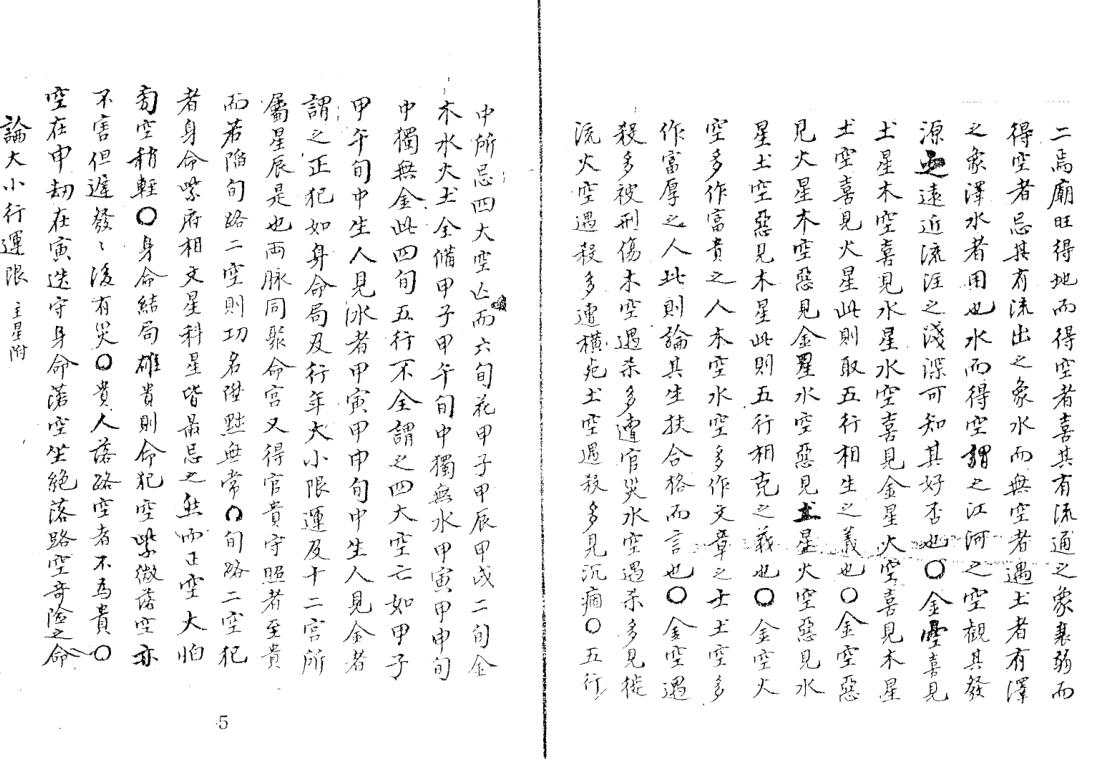 二馬廟旺得地而得空者喜其有流通之象衰弱而
得空者忌其有流出之象水而無空者遇土者有澤
之象澤水者用也水而得空謂之江河之空觀其發
源之遠近流涯之淺深可知其好否也○金空喜見
土星木空喜見水星水空喜見金星火空喜見木星
土空喜見火星此則取五行相生之義也○金空惡
見火星木空惡見金星水空惡見土星火空惡見水
星土空惡見木星此則五行相克之義也○金空火
空多作富貴之人木空水空多作文章之士土空多
作富厚之人此則論其生扶合格而言也○金空遇
殺多被刑傷木空遇杀多遭官災水空遇杀多見徙
流火空遇殺多遭横死土空遇殺多見沉痼○五行
中所忌四大空亡而六旬花甲子甲辰甲戌二旬金
木水火土全備甲子甲午旬中獨無水甲寅甲申旬
中獨無金此四旬五行不全謂之四大空亡如甲子
甲午旬中生人見水者甲寅甲申旬中生人見金者
謂之正犯如身命局及行年大小限運及十二宮所
屬星辰是也両脉同聚命宮又得官貴守照者至貴
而若陷旬路二空則功名陞黜無常○旬路二空犯
者身命紫府相文星科星皆最忌之然而正空大怕
旁空稍輕○身命結局雄貴則命犯空紫微落空亦
不害但遲發〻後有災○貴人落路空者不為貴○
空在申劫在寅迭守身命落空坐絕落路空奇險之命
論大小行運限 主星附
5